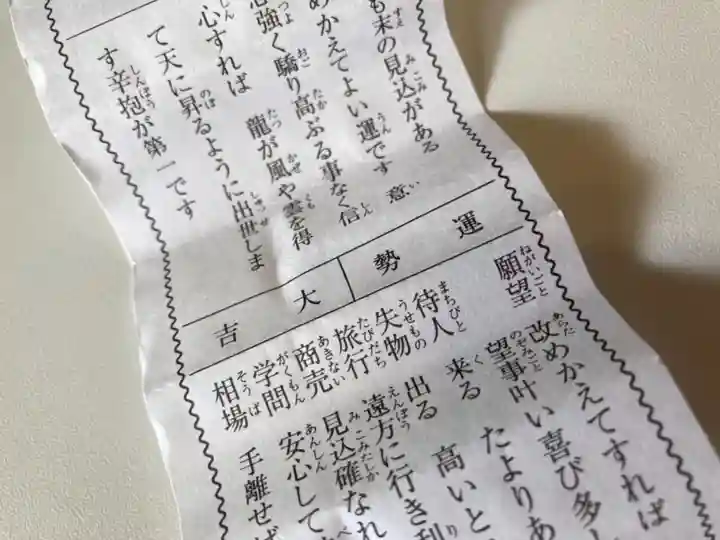 も末の見込がある
めかえてよい運です 意
心強く驕り高ぶる事なく信
心すれば 龍が風や雲を得
て天に昇るように出世しま
す辛抱が第一です
運勢
大吉
願望 改めかえてすれば
望事叶い喜び多し
待人 来る たよりあ
失物 出る 高いと
旅行 遠方に行き利
商売 見込確なれ
学問 安心して
相場 手離せば